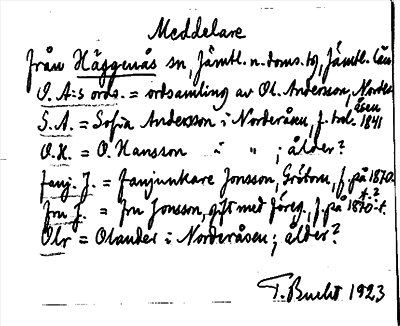 Meddelare
från Häggenås sn, Jämtl. n. doms. tg, Jämtl. län
O. A:s ords. = ordsamling av Ol. Andersson, Norder-
åsen
S. A. = Sofia Andersson i Norderåsen, f. trol. 1841
O. H. = O. Hansson i " ; ålder?
fanj. J. = fanjunkare Jonsson, Gröton, f. på 1870-
t.?
fru J. = fru Jonsson, gift med föreg., f. på 1870-t.
Olr = Olander i Norderåsen; ålder?
T. Bucht 1923